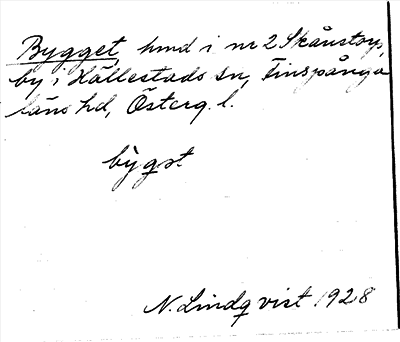 Bygget, hmd i nr 2 Skånstorp,
by i Hällestads sn, Finspånga
läns hd, Österg. l.
N. Lindqvist 1928